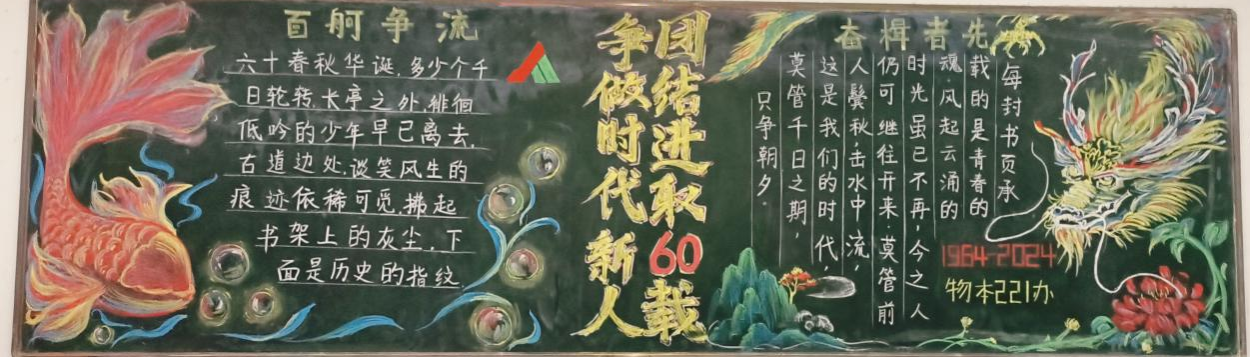 百舸争流
六十春秋华诞,多少个千
日轮转,长亭之外,徘徊
低吟的少年早已离去,
古道边处,谈笑风生的
痕迹依稀可觅,拂起
书架上的灰尘,下
面是历史的指纹.
团结进取60载
争做时代新人
奋楫者先
每封书页承
载的是青春的
魂风起云涌的
时光虽已不再,今之人
仍可继往开来.莫管前
人鬓秋,击水中流,
这是我们的时代,
莫管千日之期,
只争朝夕.
1964-2024
物本221办